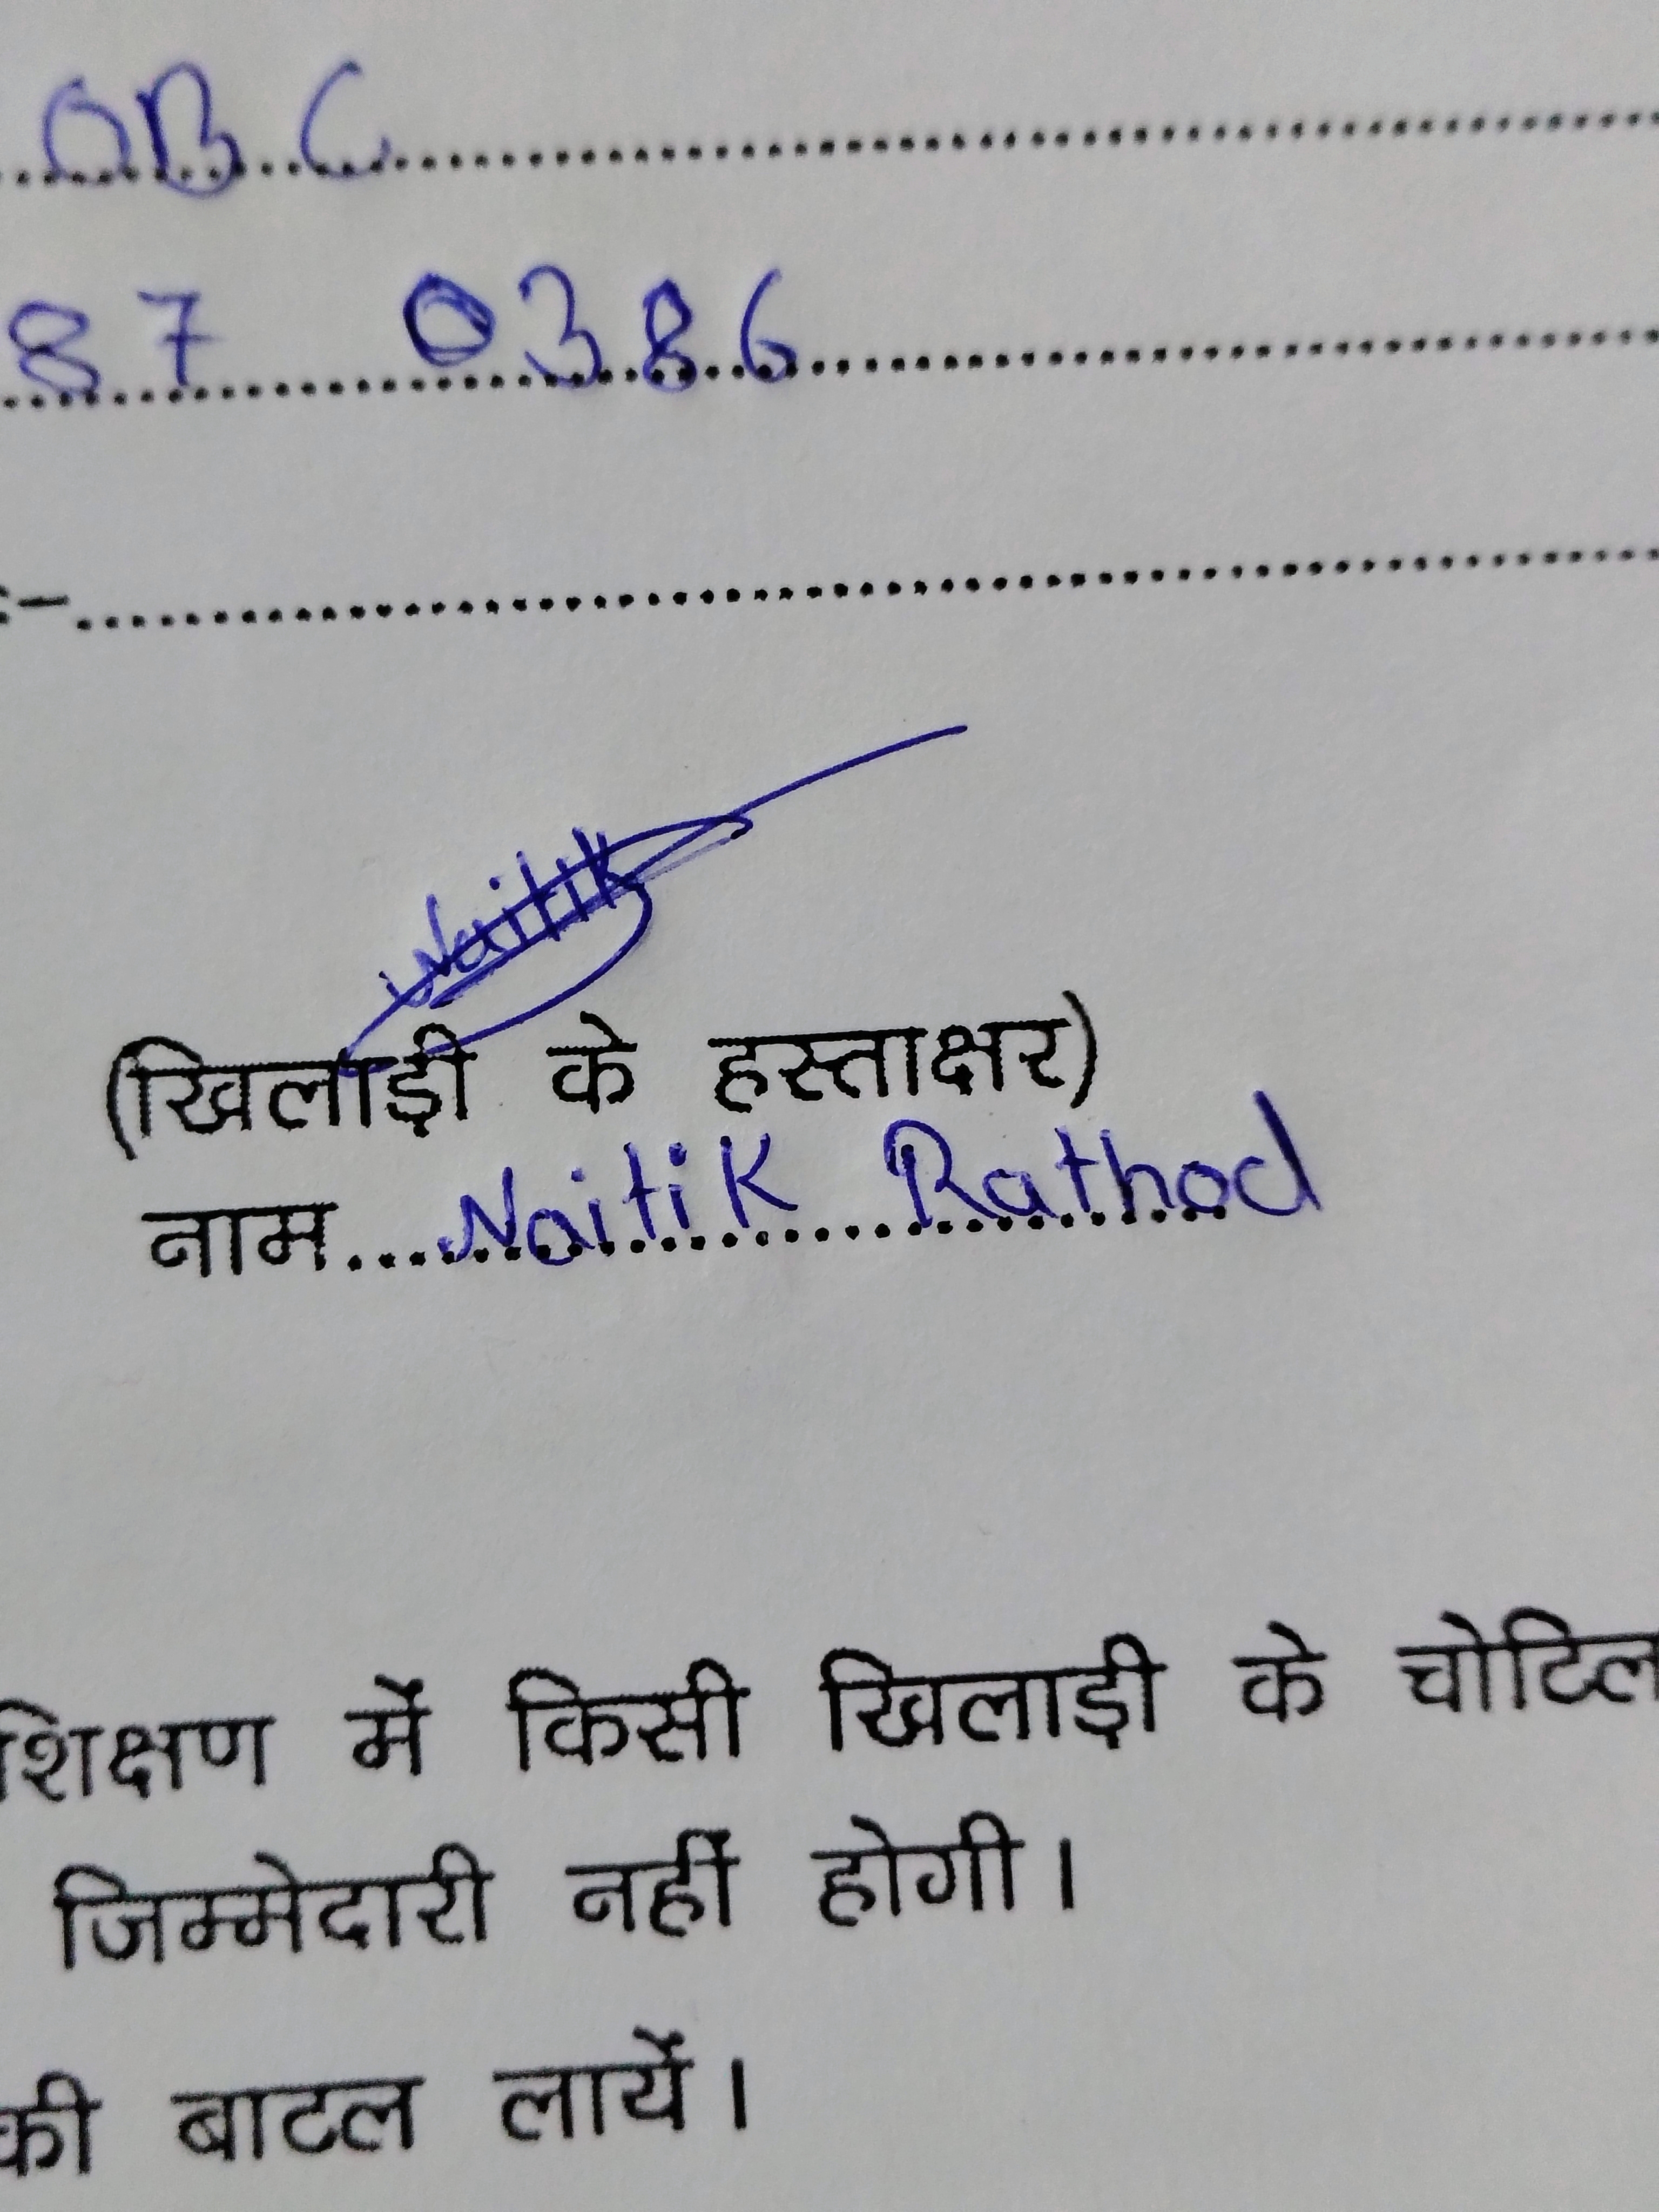 OBC
87 0386
:-
Naitik
(खिलाड़ी के हस्ताक्षर)
नाम.....Naitik Rathod
शिक्षण में किसी खिलाड़ी के चोटिल
जिम्मेदारी नहीं होगी।
की बाटल लायें।